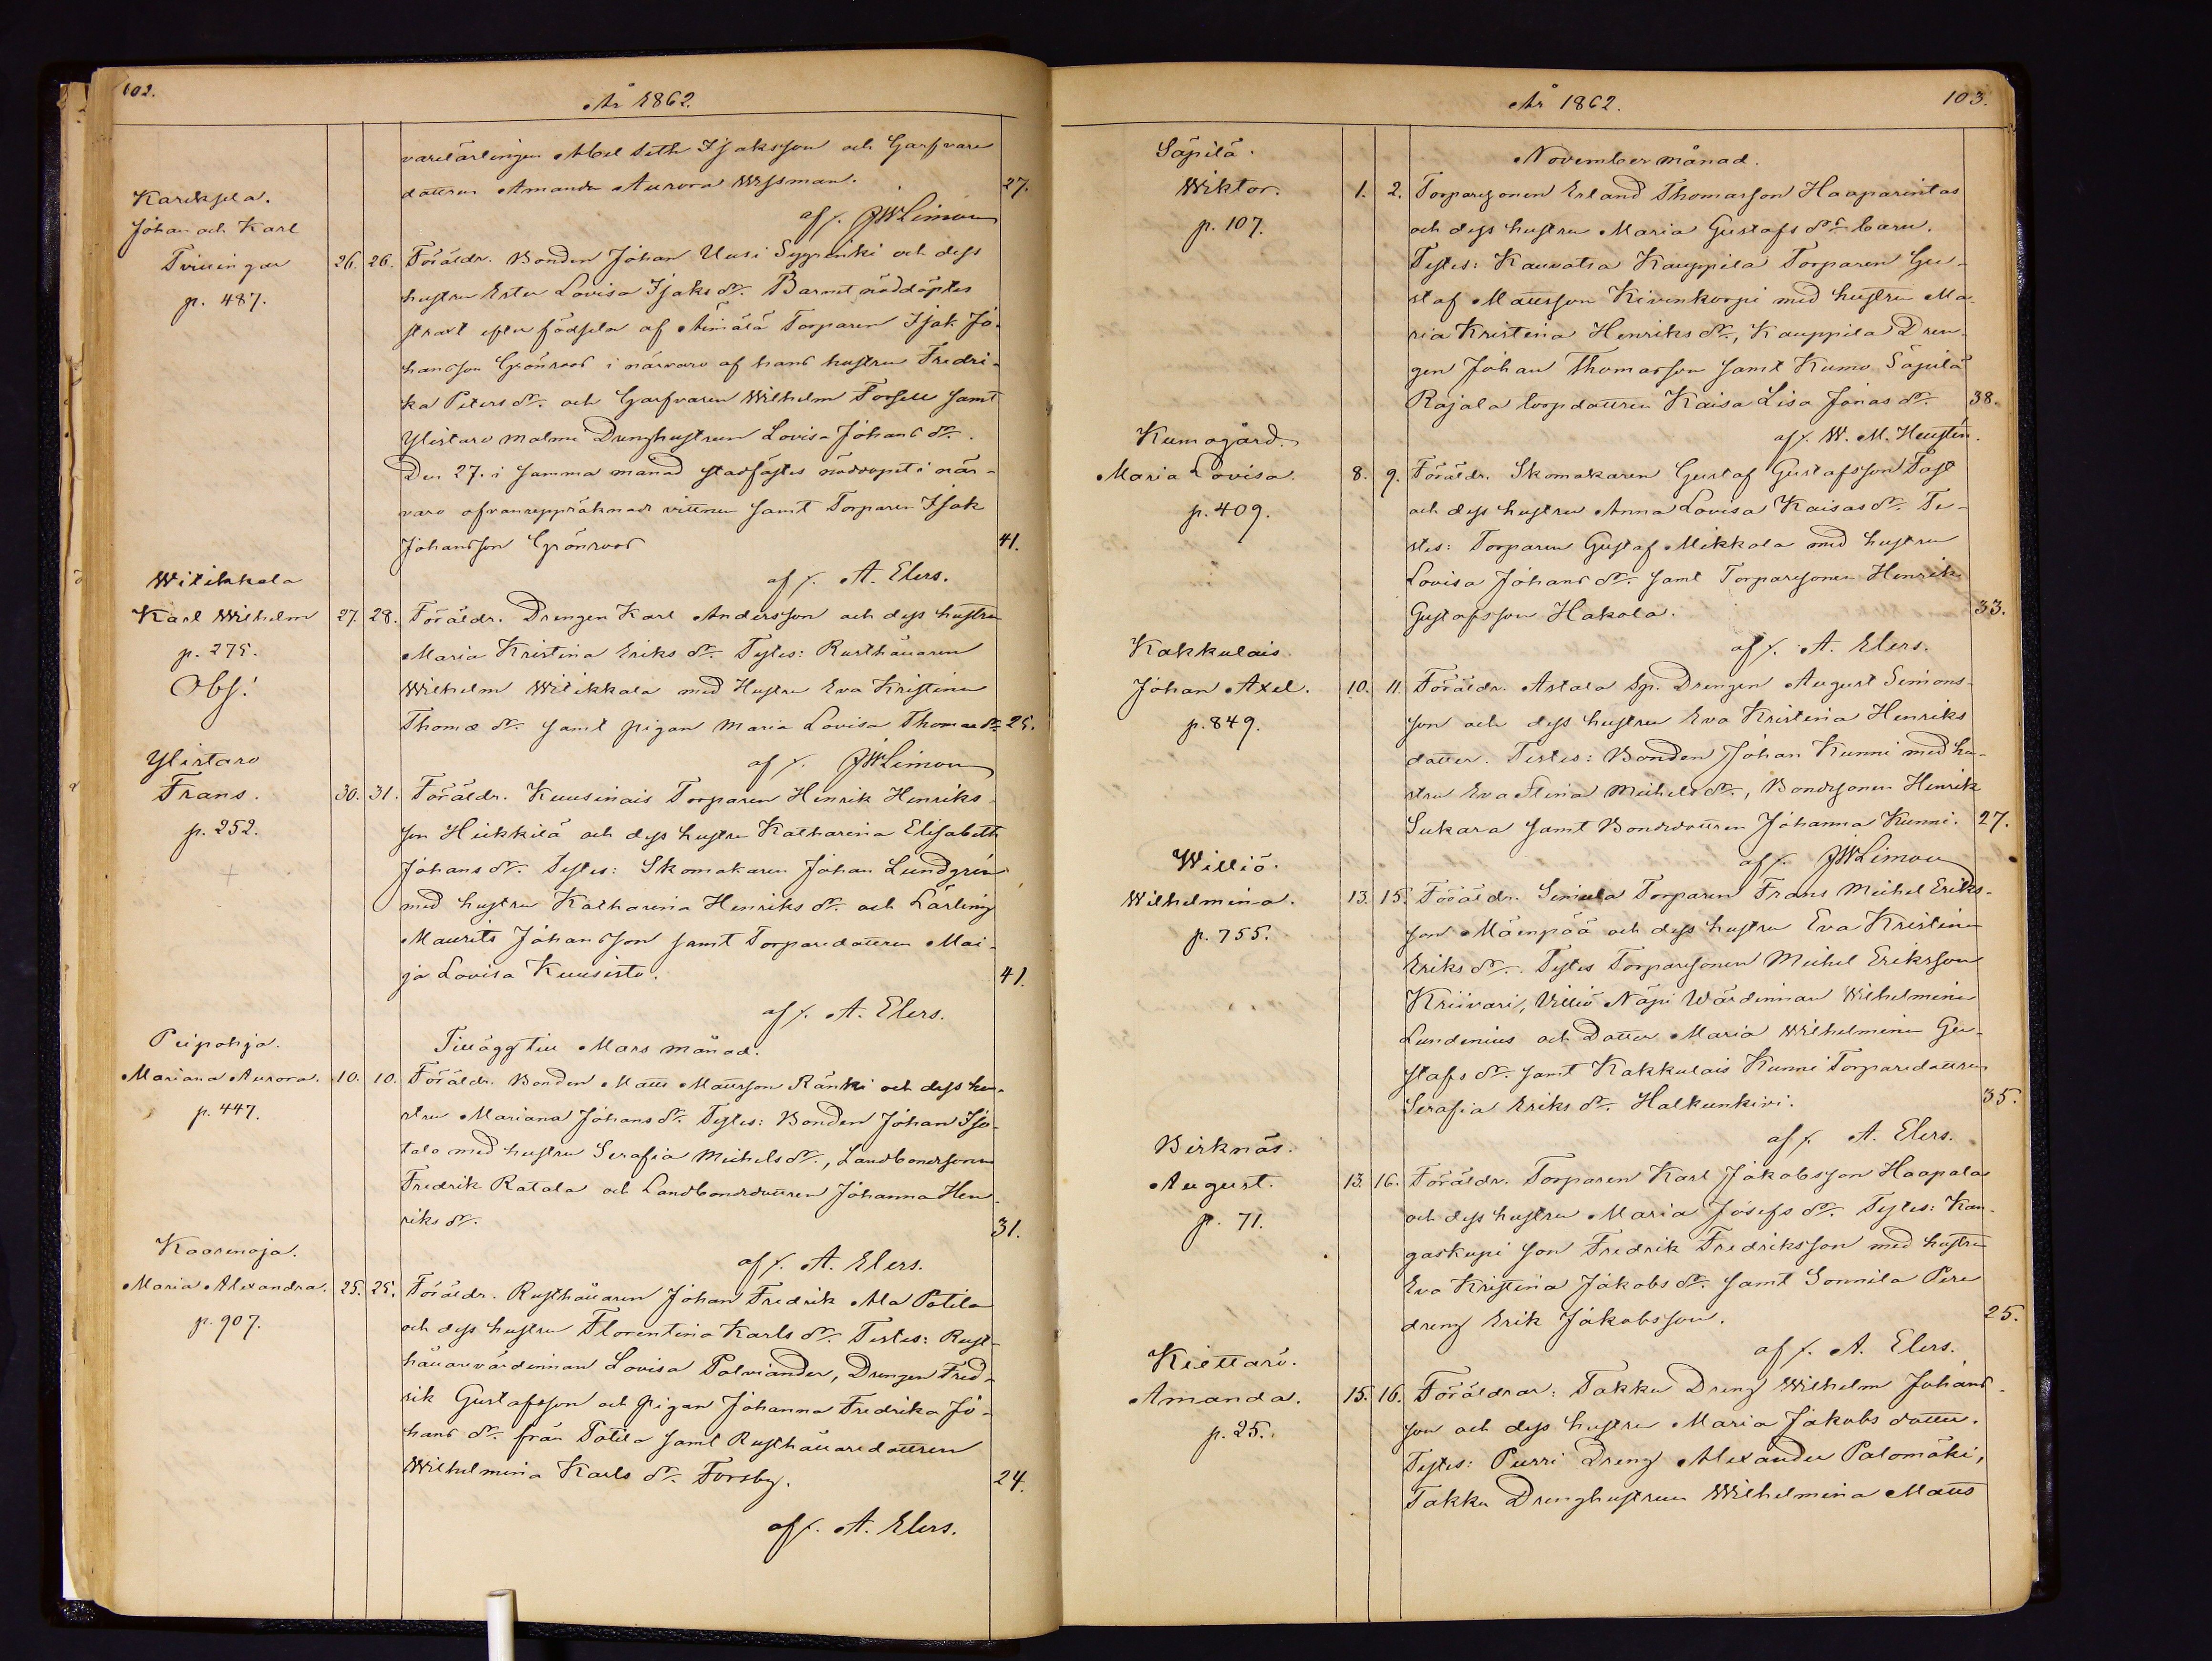 102.
År 1862.
varelärlingen Abel Seth Isaksson och Garfvare
dottren Amanda Aurora Wissman. 27.
af /. JWLimon
Kareksela.
Johan och Karl
Tvillingar
p. 487.
26. 26. Föräldr. Bonden Johan Uusi Syypenki och dess
hustru Ester Lovisa Isaks dr. Barnet nöddöptes
straxt efter födseln af Äimälä Torparen Isak Jo-
hansson Grönroos i närvaro af hans hustru Fredri-
ka Peters dr. och Garfvaren Wilhelm Forsell samt
Ylistaro Malmi Drenghustrun Lovisa Johans dr.
Den 27. i samma månad stadfästes nöddopet i när-
varo ofvanuppräknade vittnen samt Torparen Isak
Johansson Grönroos 41.
af /. A. Elers.
Witikkala
Karl Wilhelm
p. 275.
Obs!
27. 28. Föräldr. Drengen Karl Andersson och dess hustru
Maria Kristina Eriks dr. Testes: Rusthållaren
Wilhelm Witikkala med Hustru Eva Kristina
Thomæ dr. samt pigan Maria Lovisa Thomæ dr. 25.
af /. JWLimon
Ylistaro
Frans.
p. 252.
+
30. 31. Föräldr. Kuusinais Torparen Henrik Henriks-
son Heikkilä och dess hustru Katharina Elisabeth
Johans dr. Testes: Skomakaren Johan Lundgrén
med hustru Katharina Henriks dr. och Lärling
Maurits Johansson samt Torparedottren Mai-
ja Lovisa Kuusisto. 41.
af /. A. Elers.
Tillägg till Mars månad.
Peipohja.
Mariana Aurora.
p. 447.
10. 10. Föräldr. Bonden Matts Mattsson Ränki och dess hu-
stru Mariana Johans dr. Testes: Bonden Johan Iso-
talo med hustru Serafia Michels dr., Landbondesonen
Fredrik Ratala och Landbondedottren Johanna Hen-
riks dr. 31.
af /. A. Elers.
Kaarenoja.
Maria Alexandra.
p. 907.
25. 25. Föräldr. Rusthållaren Johan Fredrik Ala Potila
och dess hustru Florentina Karls dr. Testes: Rust-
hållarevärdinnan Lovisa Palviander, Drengen Fred-
rik Gustafsson och Pigan Johanna Fredrika Jo-
hans dr. från Potila samt Rusthållaredottren
Wilhelmina Karls dr. Forsby. 24.
af /. A. Elers.
103.
År 1862.
November månad.
Säpilä.
Wiktor.
p. 107.
1. 2. Torparesonen Erland Thomasson Haaparintas
och dess hustru Maria Gustafs dr. barn.
Testes: Kauvatsa Kauppila Torparen Gu-
staf Mattsson Kivenkorpi med hustru Ma-
ria Kristina Henriks dr., Kauppila Dren-
gen Johan Thomasson samt Kumo Säpilä
Rajala torpdottren Kaisa Lisa Jonas dr. 38.
af /. W. M. Heustén.
Kumogård.
Maria Lovisa.
p. 409.
8. 9. Föräldr. Skomakaren Gustaf Gustafsson Fast
och dess hustru Anna Lovisa Kaisas dr. Te-
stes: Torparen Gustaf Mikkola med hustru
Lovisa Johans dr. samt Torparesonen Henrik
Gustafsson Hakola. 33.
af /. A. Elers.
Kakkulais.
Johan Axel.
p. 849.
10. 11. Föräldr. Astala Sp. Drengen August Simons-
son och dess hustru Eva Kristina Henriks
dotter. Testes: Bonden Johan Kunni med hu-
stru Eva Stina Michels dr., Bondesonen Henrik
Sukara samt Bondedottren Johanna Kunni. 27.
af /. JWLimon
Williö.
Wilhelmina.
p. 755.
13. 15. Föräldr. Simula Torparen Frans Michel Eriks-
son Mäenpää och dess hustru Eva Kristina
Eriks dr. Testes Torparesonen Michel Eriksson
Kriivari, Villiö Näpi Wärdinnan Wilhelmina
Lundenius och Dotter Maria Wilhelmina Gu-
stafs dr. samt Kakkulais Kunni Torparedottren
Serafia Eriks dr. Halkunkivi. 35.
af /. A. Elers.
Birknäs.
August.
p. 71.
13. 16. Föräldr. Torparen Karl Jakobsson Haapala
och dess hustru Maria Josefs dr. Testes: Kan-
gaskupi son Fredrik Fredriksson med hustru
Eva Kristina Jakobs dr. samt Sonnila Pere
dreng Erik Jakobsson. 25.
af /. A. Elers.
Kiettarö.
Amanda.
p. 25.
15. 16. Föräldrar: Takku Dreng Wilhelm Johans-
son och dess hustru Maria Jakobs dotter.
Testes: Purri Dreng Alexander Palomäki,
Takku Drenghustrun Wilhelmina Matts